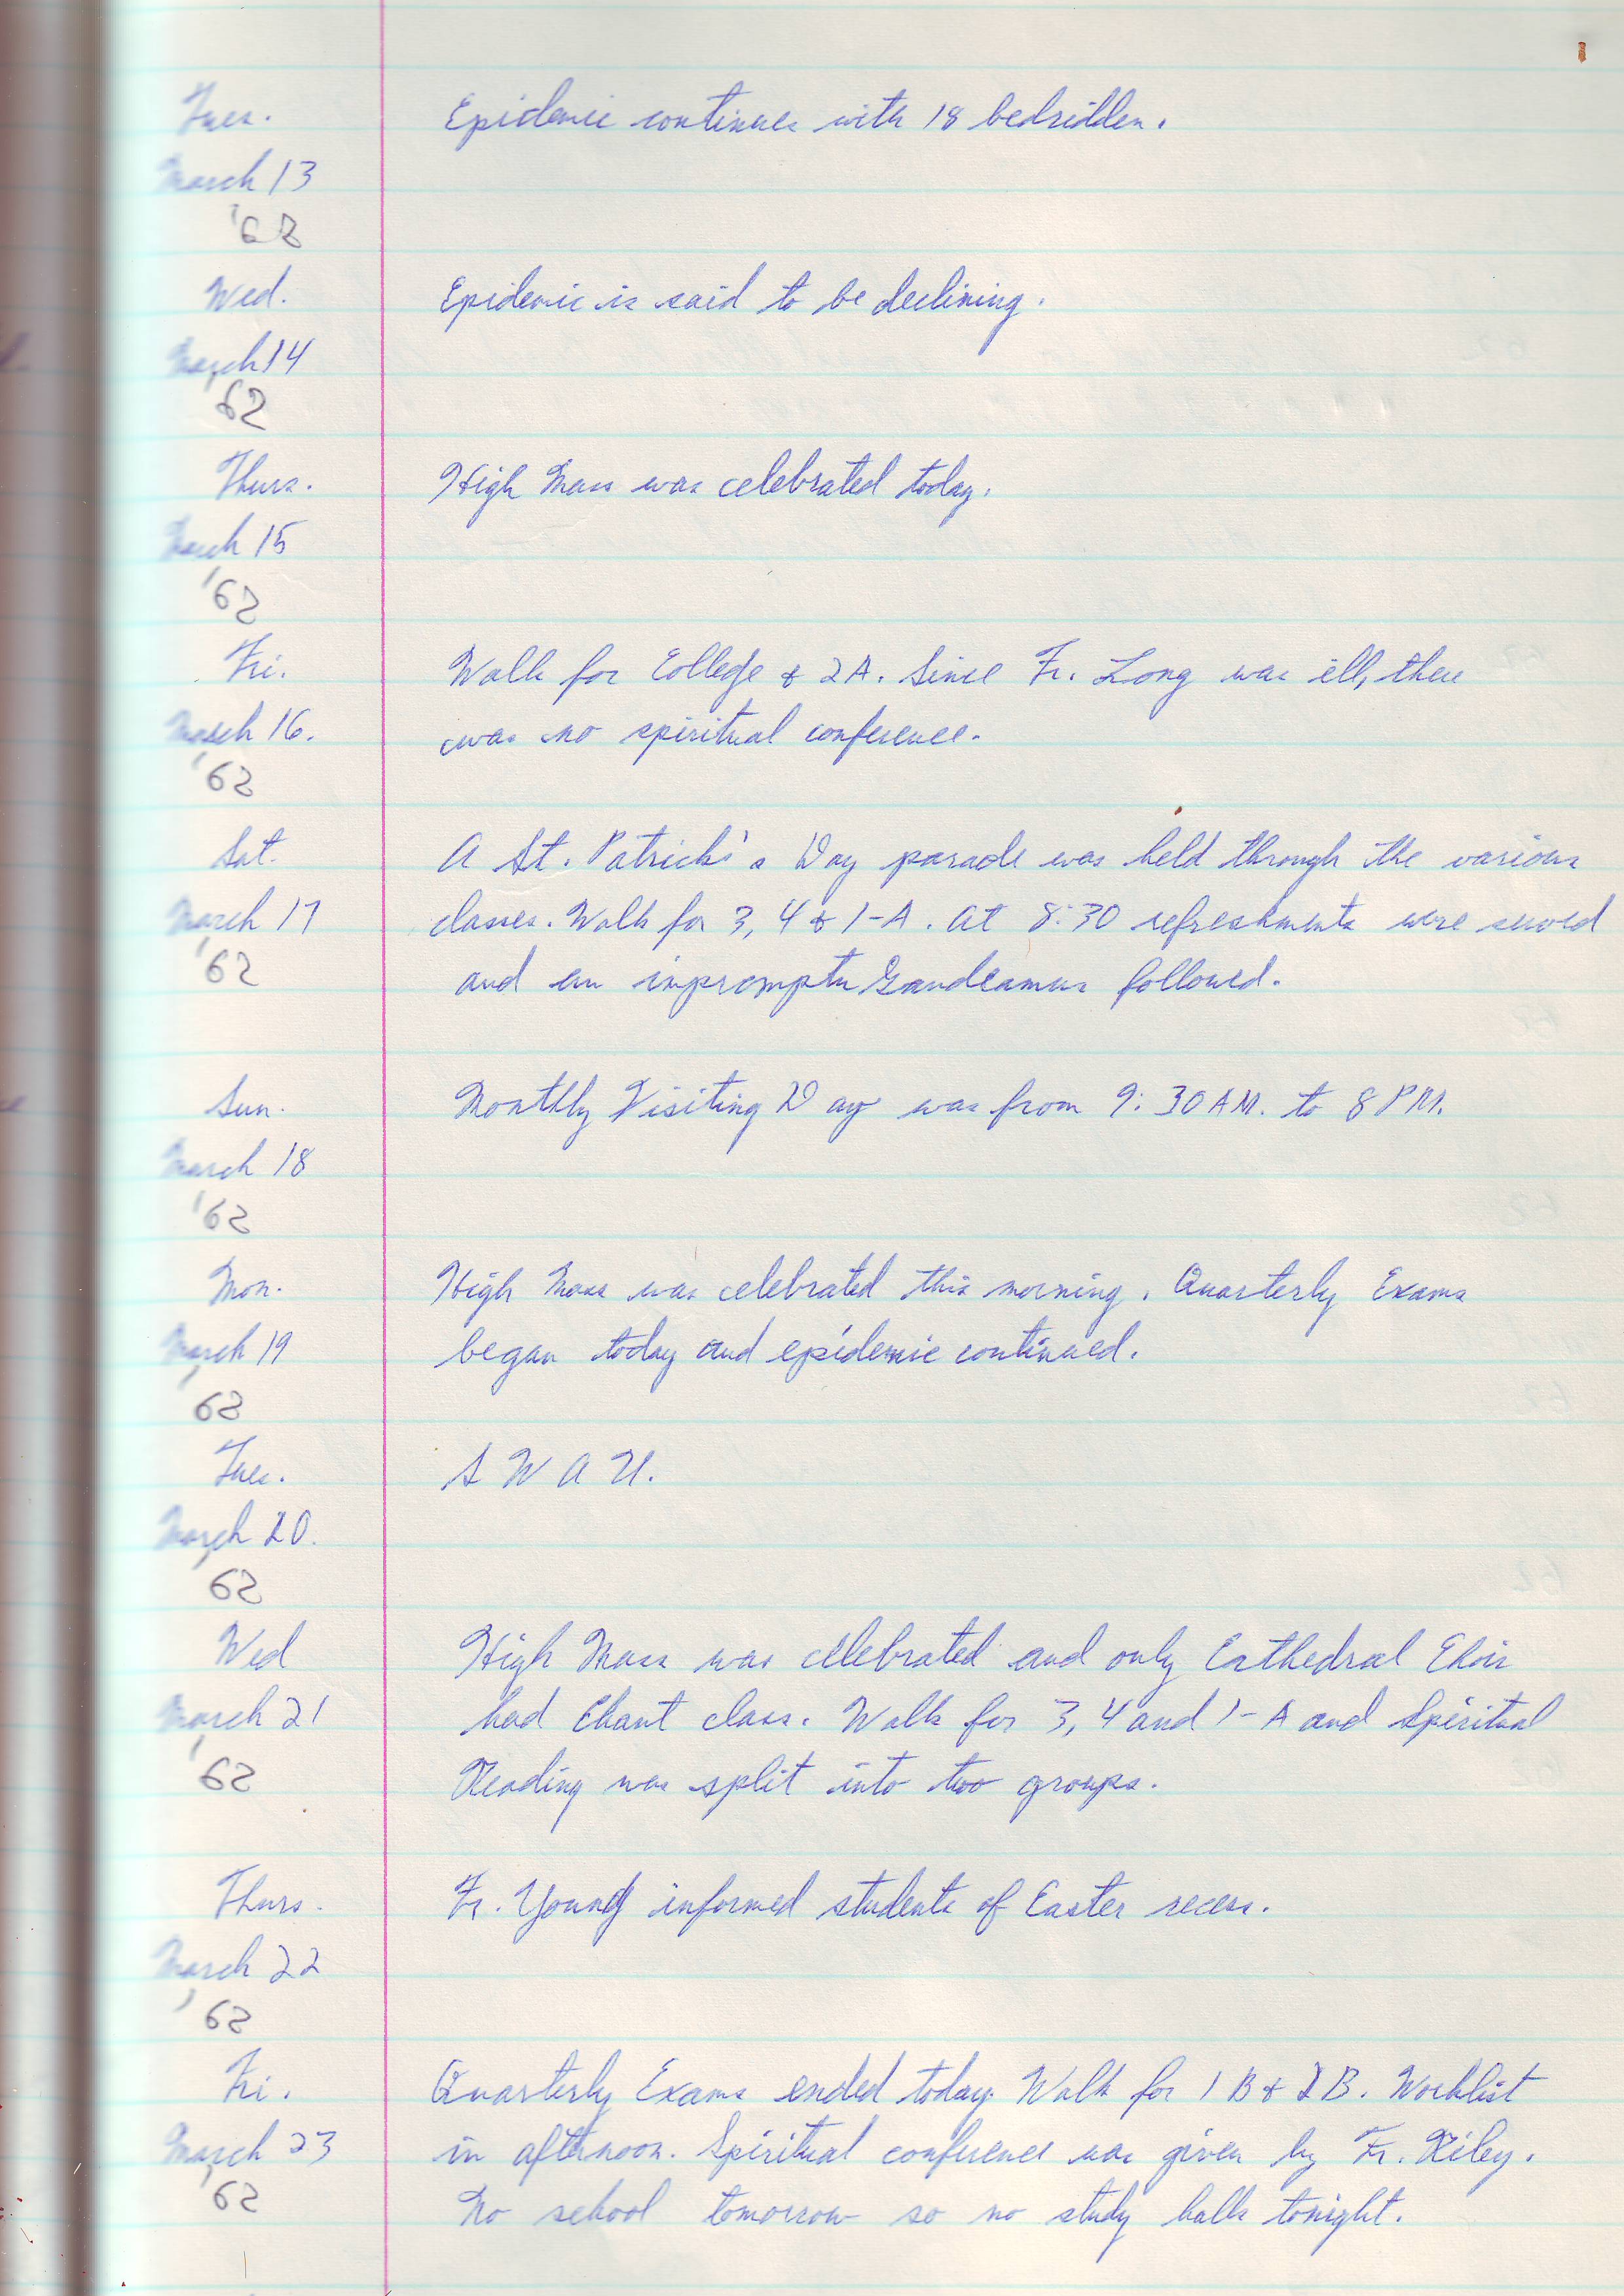 Tues. Epidemic continues with 18 bedridden.
March 13
'62
Wed. Epidemic is said to be declining.
March 14
'62
Thurs. High Mass was celebrated today.
March 15
'62
Fri. Walk for College & 2A. Since Fr. Long was ill, there
March 16. was no spiritual conference.
'62
Sat. A St. Patrick's Day parade was held through the various
March 17 classes. Walk for 3, 4 & 1-A. At 8:30 refreshments were served
'62 and an impromptu Gaudeamus followed.
Sun. Monthly Visiting Day was from 9:30 A.M. to 8 P.M.
March 18
'62
Mon. High Mass was celebrated this morning. Quarterly Exams
March 19 began today and epidemic continued.
'62
Tues. S W A U.
March 20.
'62
Wed High Mass was celebrated and only Cathedral Choir
March 21 had Chant class. Walk for 3, 4 and 1-A and Spiritual
'62 Reading was split into two groups.
Thurs. Fr. Young informed students of Easter recess.
March 22
'62
Fri. Quarterly Exams ended today. Walk for 1B & 2B. Worklist
March 23 in afternoon. Spiritual conference was given by Fr. Riley.
'62 No school tomorrow so no study halls tonight.